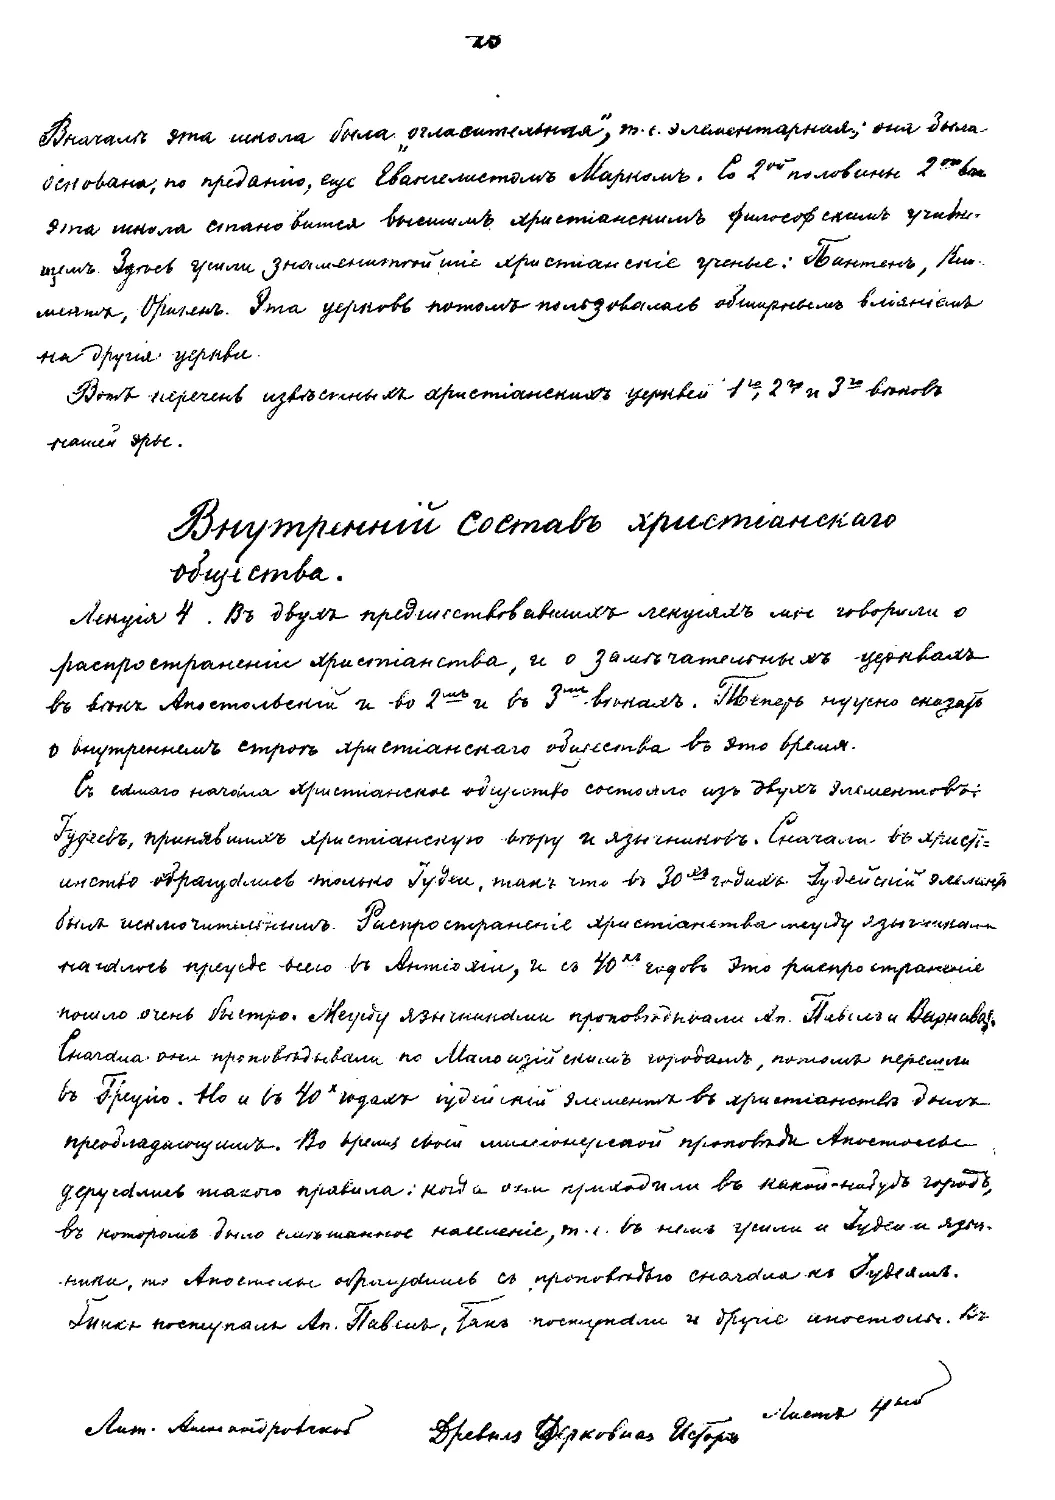 25
Вначалѣ эта школа была „огласительная“, т. е. элементарная; она была
основана, по преданію, еще Евангелистомъ Маркомъ. Со 2ой половины 2го вѣка
эта школа становится высшимъ христіанскимъ философскимъ учили-
щемъ. Здѣсь жили знаменитѣйшіе христіанскіе ученые: Пантенъ, Кли-
ментъ, Оригенъ. Эта церковь потомъ пользовалась обширнымъ вліяніемъ
на другія церкви.
Вотъ перечень извѣстныхъ христіанскихъ церквей 1го, 2го и 3го вѣковъ
нашей эры.
Внутренній составъ христіанскаго
общества.
Лекція 4. Въ двухъ предшествовавшихъ лекціяхъ мы говорили о
распространеніи христіанства, и о замѣчательныхъ церквахъ
въ вѣкъ Апостольскій и во 2мъ и въ 3мъ вѣкахъ. Теперь нужно сказать
о внутреннемъ строѣ христіанскаго общества въ это время.
Съ самаго начала христіанское общество состояло изъ двухъ элементовъ:
Іудеевъ, принявшихъ христіанскую вѣру и язычниковъ. Сначала въ христі-
анство обращались только Іудеи, такъ что въ 30хъ годахъ Іудейскій элементъ
былъ исключительнымъ. Распространеніе христіанства между язычниками
началось прежде всего въ Антіохіи, и съ 40хъ годовъ это распространеніе
пошло очень быстро. Между язычниками проповѣдывали Ап. Павелъ и Варнава.
Сначала они проповѣдывали по Малоазійскимъ городамъ, потомъ перешли
въ Грецію. Но и въ 40х годахъ іудейскій элементъ въ христіанствѣ былъ
преобладающимъ. Во время своей миссіонерской проповѣди Апостолы
держались такого правила: когда они приходили въ какой-нибудь городъ,
въ которомъ было смѣшанное населеніе, т. е. въ немъ жили и Іудеи и языч-
ники, то Апостолы обращались съ проповѣдью сначала къ Іудеямъ.
Такъ поступалъ Ап. Павелъ, такъ поступали и другіе апостолы. Въ
Лит. Александровской Древняя Церковная Исторія Листъ 4ый